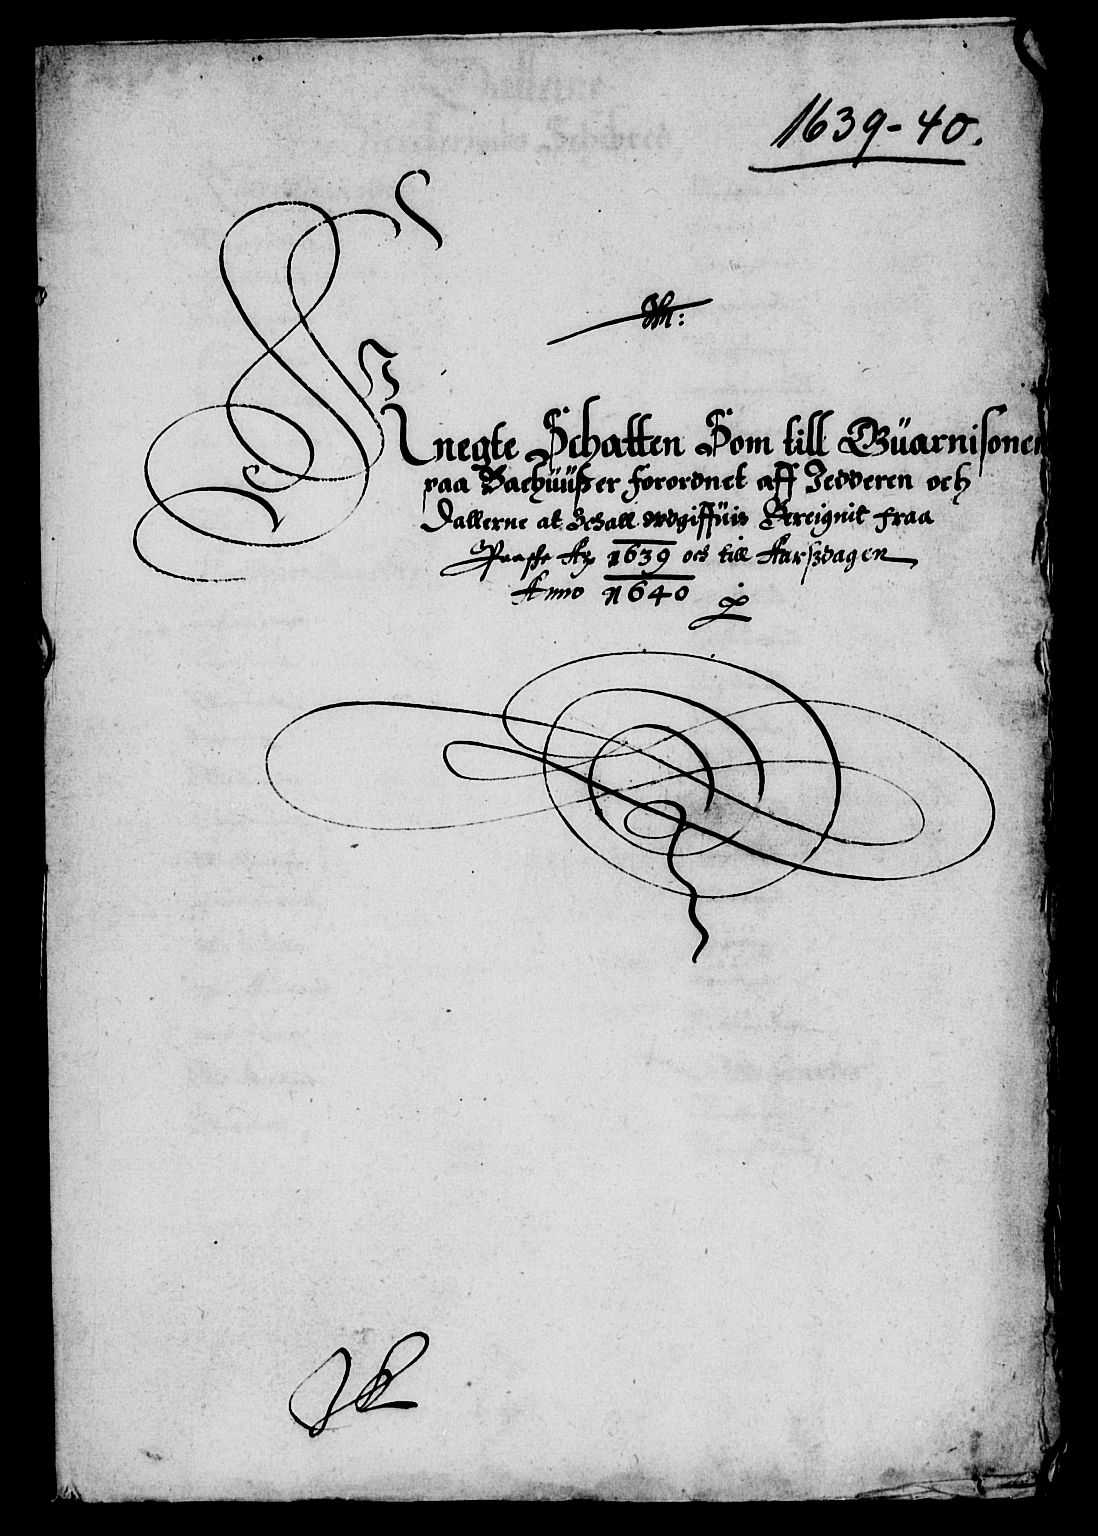 1639-40.
Knegte Schatten Som till Guarnisonen
paa Bachuüßer forordnet aff Jedderen och
Dallerne at Schall vdgiffuis Bereignit fraa
Paaske Ao 1639 och till Aarßdagen
Anno 1640